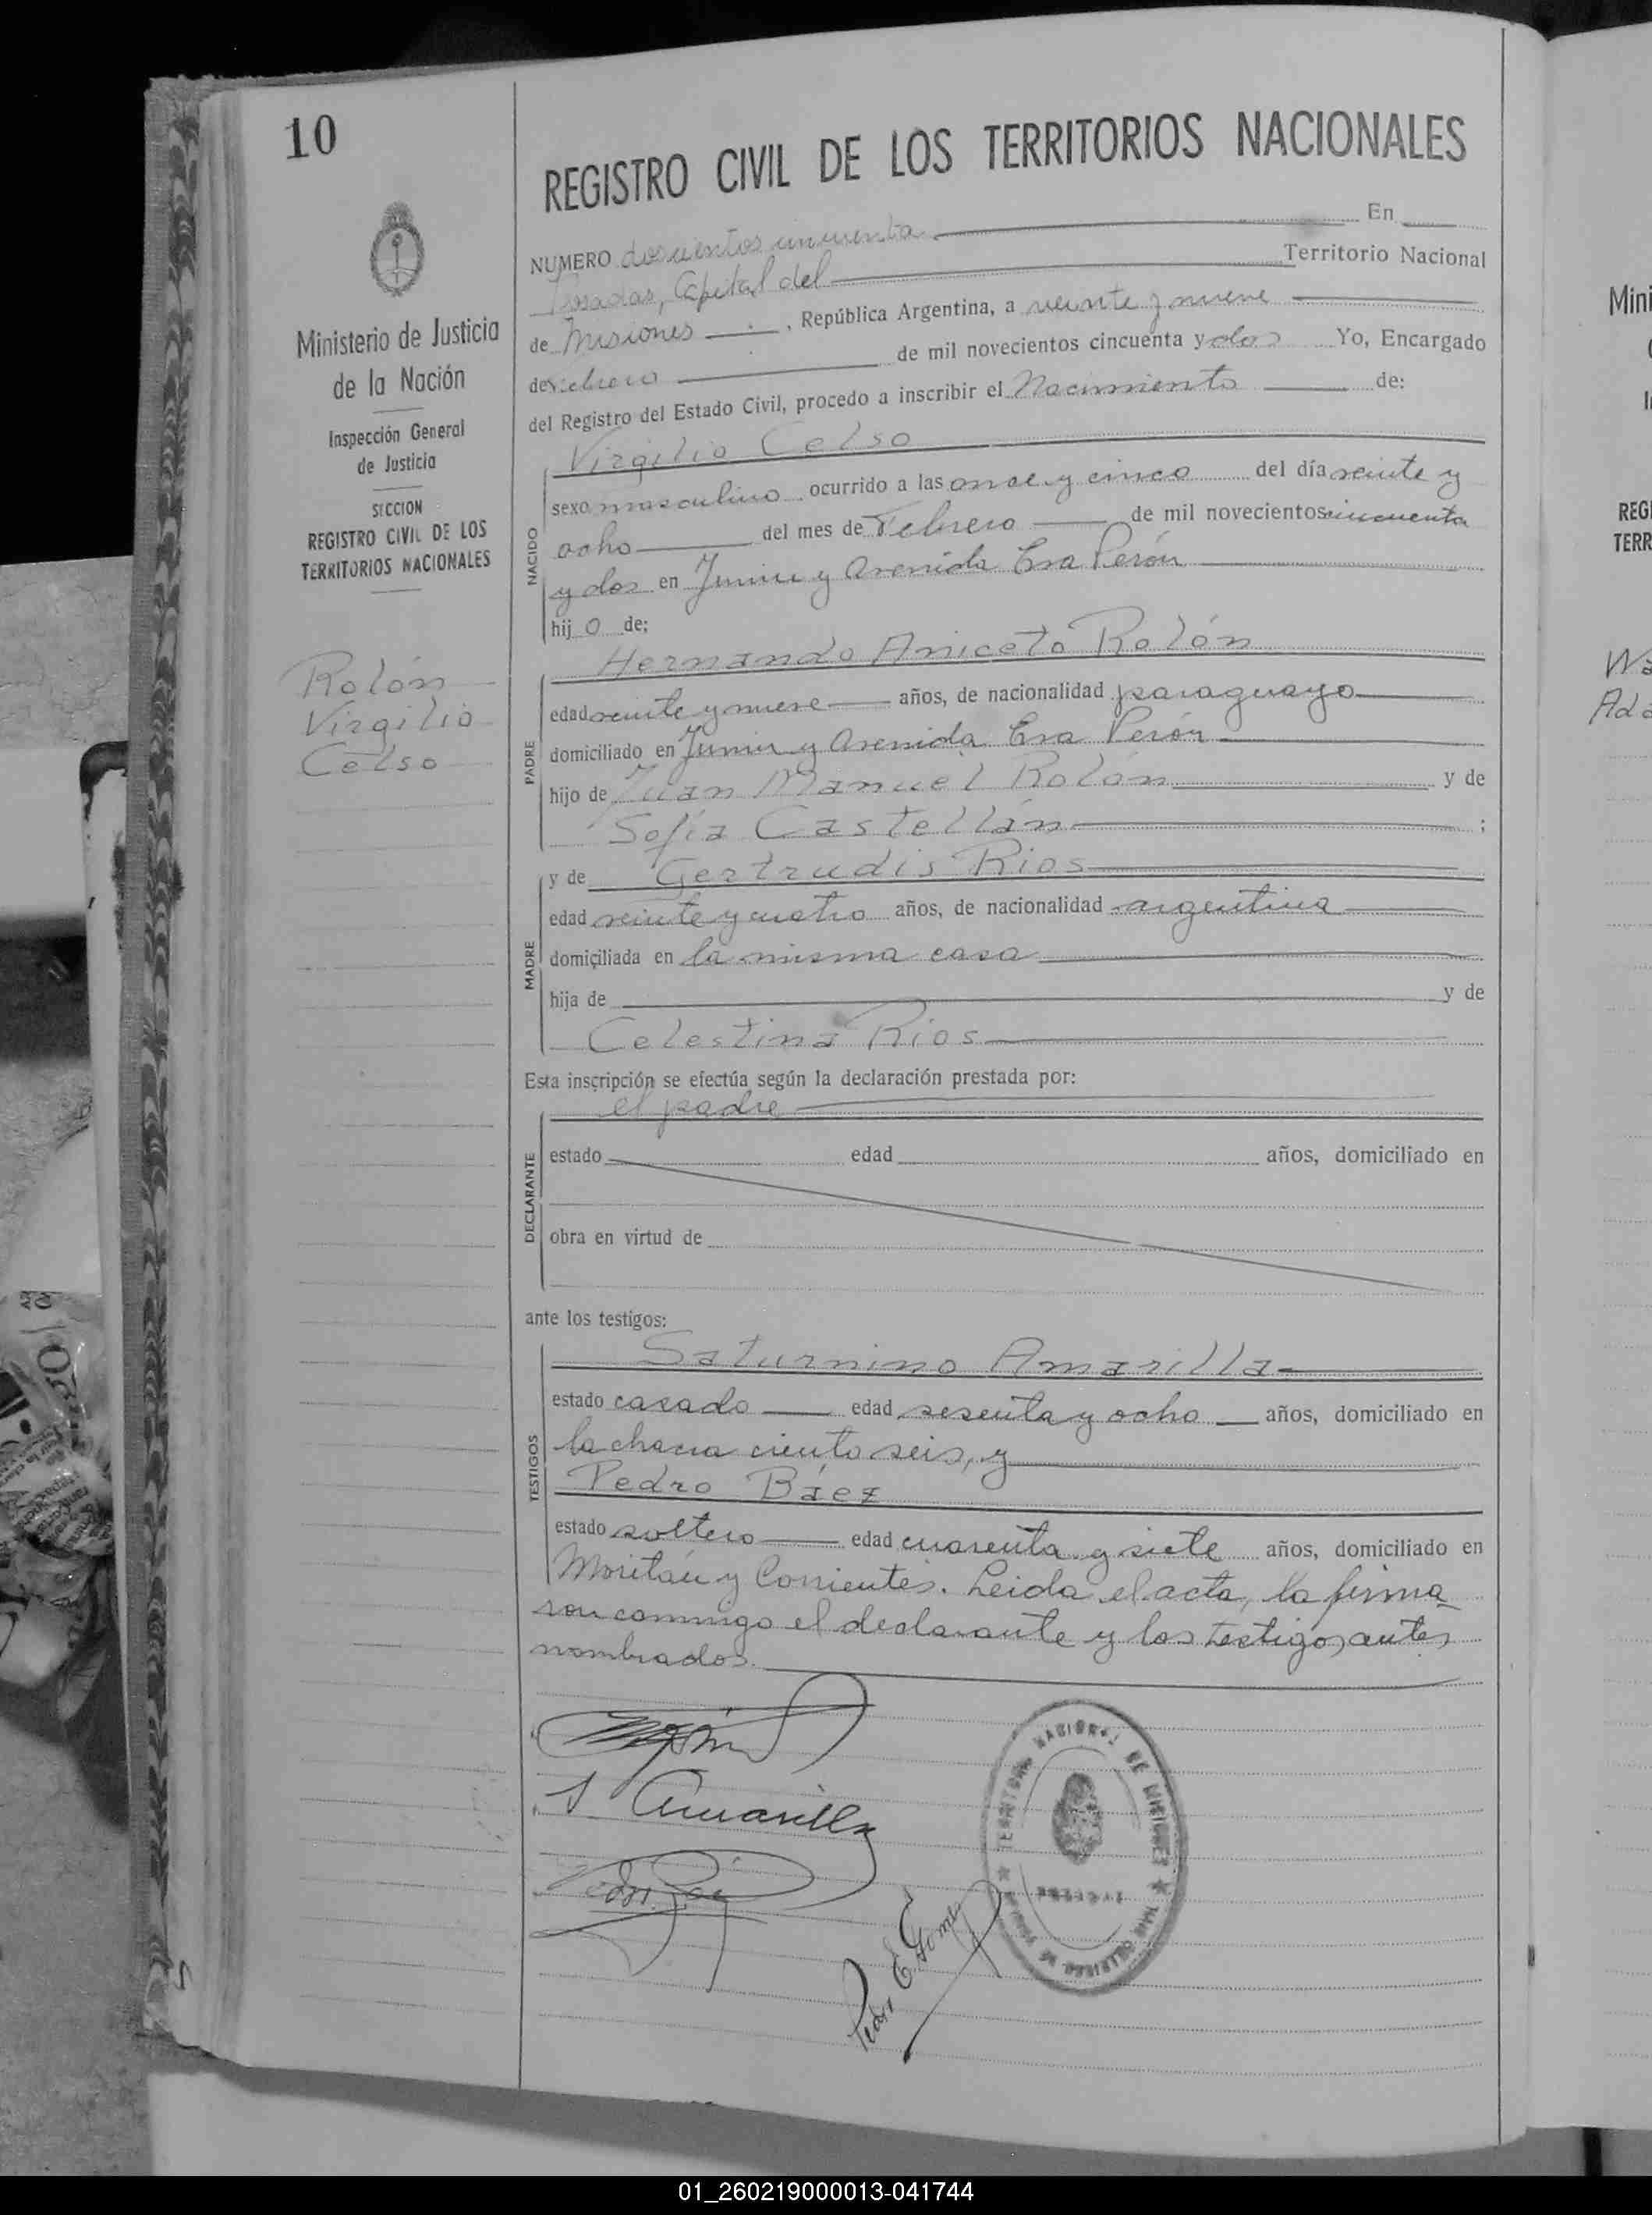 10
REGISTRO CIVIL DE LOS TERRITORIOS NACIONALES
NUMERO doscientos cincuenta En
Posadas, Capital del Territorio Nacional
de Misiones, República Argentina, a veinte y nueve
de Febrero de mil novecientos cincuenta y dos Yo, Encargado
del Registro del Estado Civil, procedo a inscribir el Nacimiento de:
Virgilio Celso
NACIDO
sexo masculino ocurrido a las once y cinco del día veinte y
ocho del mes de Febrero de mil novecientos cincuenta
y dos en Junin y Avenida Eva Perón
hijo de:
Hernando Aniceto Rolón
PADRE
edad veinte y nueve años, de nacionalidad paraguayo
domiciliado en Junin y Avenida Eva Perón
hijo de Juan Manuel Rolón y de
Sofía Castellán ;
MADRE
y de Gertrudis Rios
edad veinte y cuatro años, de nacionalidad argentina
domiciliada en la misma casa
hija de y de
Celestina Rios
Esta inscripción se efectúa según la declaración prestada por:
el padre
DECLARANTE
estado edad años, domiciliado en
obra en virtud de
ante los testigos:
Saturnino Amarilla
TESTIGOS
estado casado edad sesenta y ocho años, domiciliado en
la chacra ciento seis, y
Pedro Báez
estado soltero edad cuarenta y siete años, domiciliado en
y Corrientes. Leida el acta, la firma
ron conmigo el declarante y los testigos antes
nombrados.
S Amarilla
Pedro Báez
Pedro E. Gomez
TERRITORIO NACIONAL DE MISIONES
Ministerio de Justicia
de la Nación
Inspección General
de Justicia
SECCION
REGISTRO CIVIL DE LOS
TERRITORIOS NACIONALES
Rolón
Virgilio
Celso
Mini
REGI
TERR
01_260219000013-041744